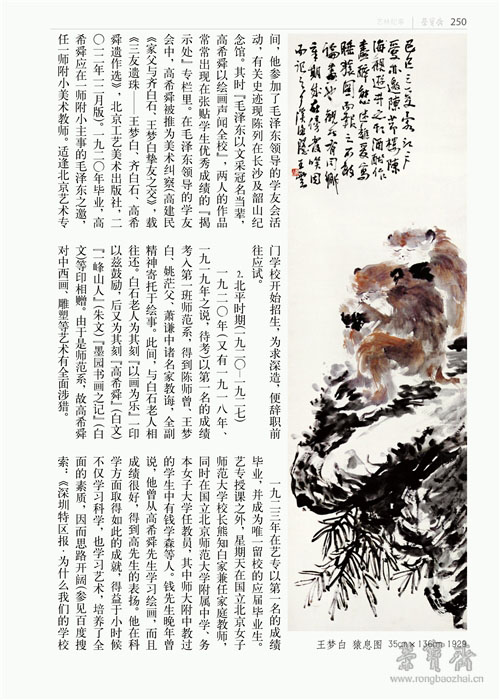 艺林纪事 荣宝斋 250
间，他参加了毛泽东领导的学友会活
动，有关史迹现陈列在长沙及韶山纪
念馆。其时『毛泽东以文采冠名当辈，
高希舜以绘画声闻全校』，两人的作品
常常出现在张贴学生优秀成绩的『揭
示处』专栏里。在毛泽东领导的学友
会中，高希舜被推为美术纠察（高建民
《家父与齐白石、王梦白挚友之交》，载
《三友遗珠——王梦白、齐白石、高希
舜遗作选》，北京工艺美术出版社，二
〇一二年一二月版）。一九二〇年毕业，高
希舜应在一师附小主事的毛泽东之邀，
任一师附小美术教师。适逢北京艺术专
门学校开始招生，为求深造，便辞职前
往应试。
2.北平时期（一九二〇—一九二七）
一九二〇年（又有一九一八年、
一九一九年之说，待考）以第一名的成绩
考入第一班师范系，得到陈师曾、王梦
白、姚茫父、萧谦中诸名家教诲，全副
精神寄托于绘事。此间，与白石老人相
往还。白石老人为其刻『以画为乐』一印
以兹鼓励，后又为其刻『高希舜』（白文）
『一峰山人』（朱文）『墨园书画之记』（白
文）等印相赠。由于是师范系，故高希舜
对中西画、雕塑等艺术有全面涉猎。
一九二三年在艺专以第一名的成绩
毕业，并成为唯一留校的应届毕业生。
艺专授课之外，星期天在国立北京女子
师范大学校长熊知白家兼任家庭教师，
同时在国立北京师范大学附属中学、务
本女子大学任教员，其中师大附中教过
的学生中有钱学森等人。钱先生晚年曾
说，他曾从高希舜先生学习绘画，而且
成绩很好，得到高先生的表扬。他在科
学方面取得如此的成就，得益于小时候
不仅学习科学，也学习艺术，培养了全
面的素质，因而思路开阔（参见百度搜
索：《深圳特区报·为什么我们的学校
王梦白 猿息图 35cm×136cm 1929
荣宝斋
www.rongbaozhai.cn